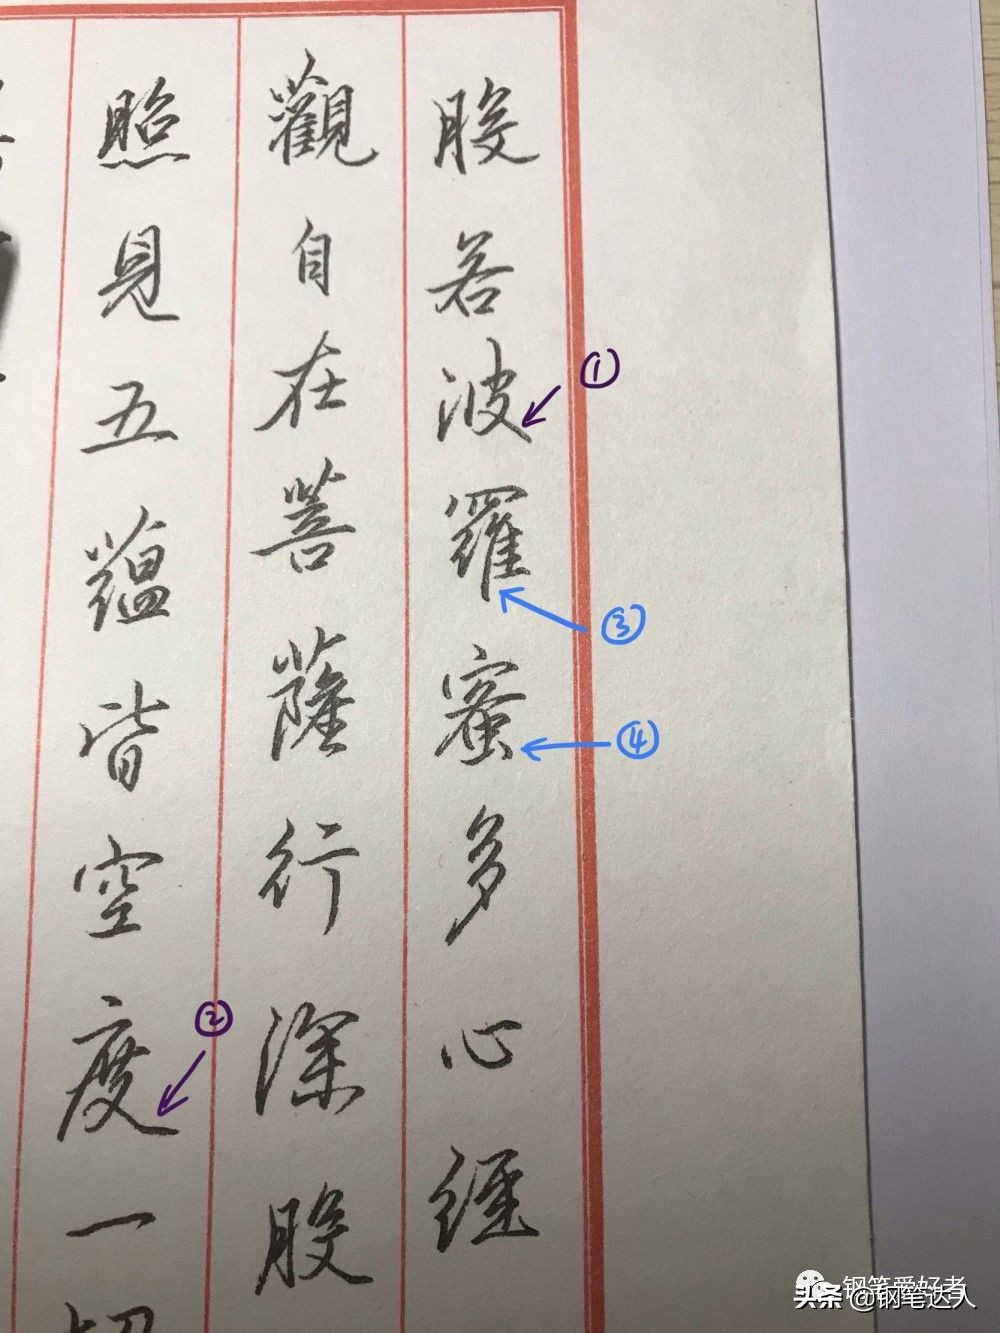 般若波羅蜜多心經
觀自在菩薩行深般
照見五蘊皆空度一切
①
③
④
②
钢笔爱好者
头条 @钢笔达人